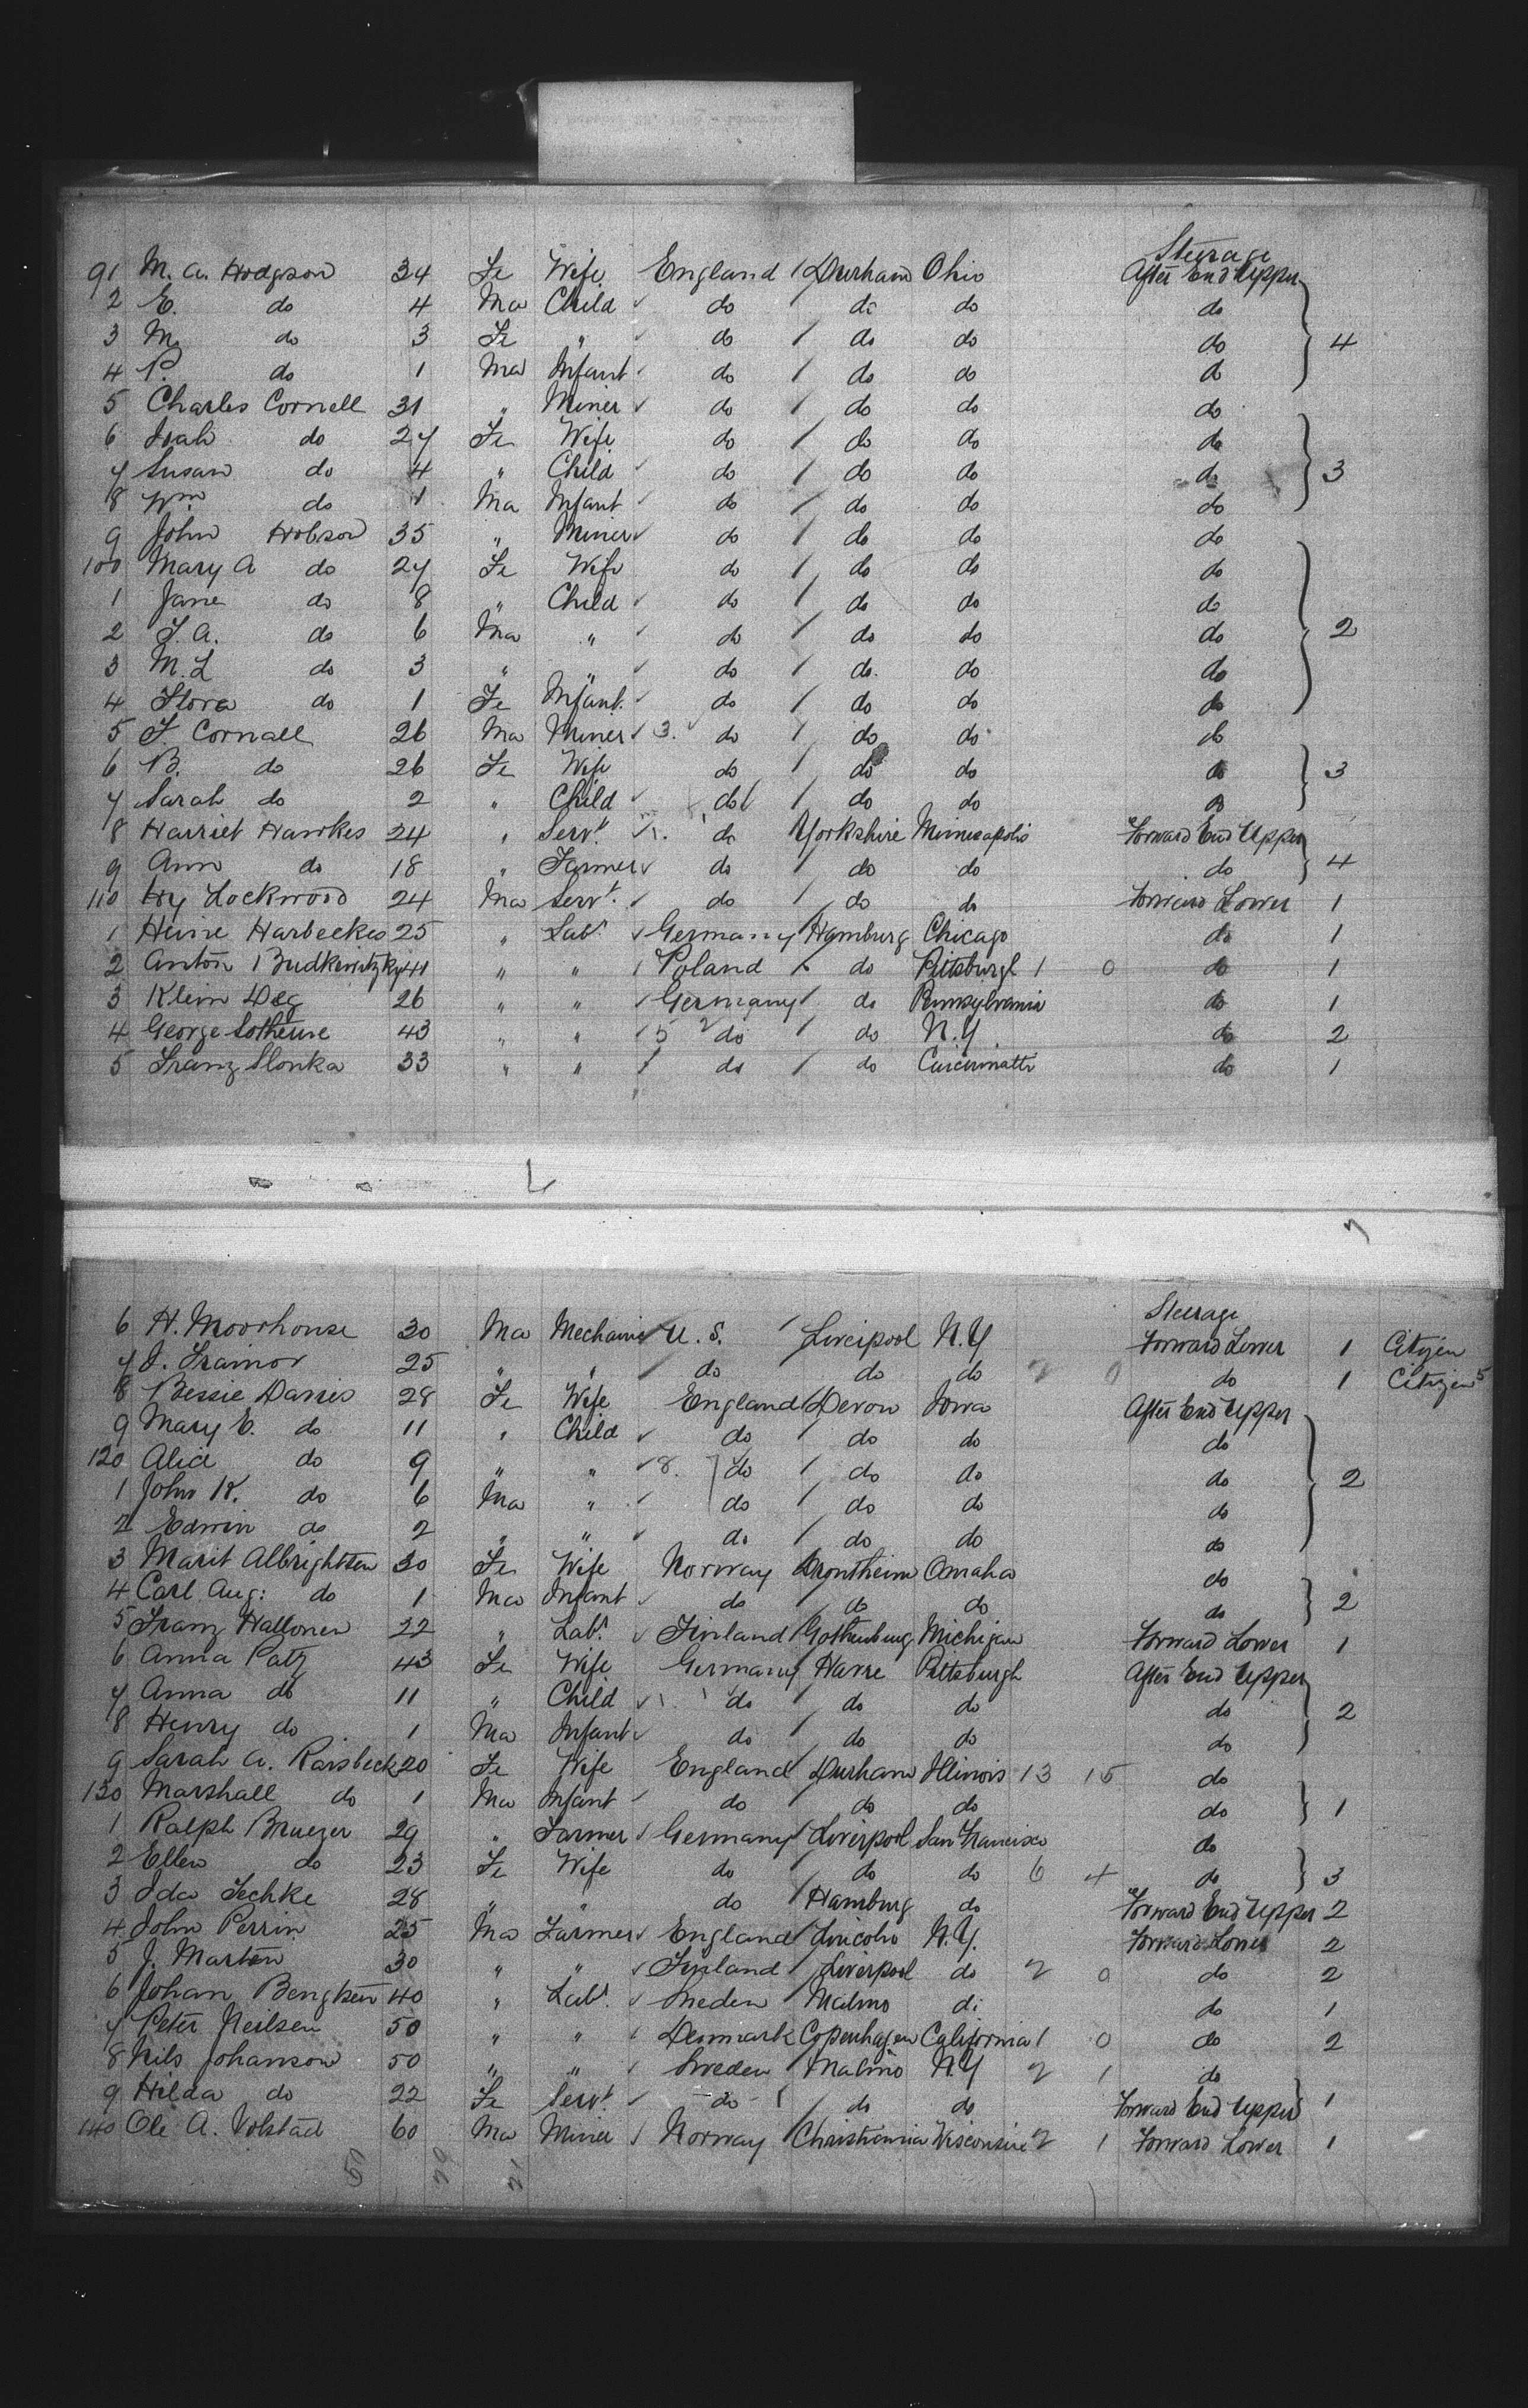 Steerage
91 M. A. Hodgson 34 Fe Wife England / Durham Ohio After End Upper
2 E. do 4 Ma Child do do do do
3 M. do 3 Fe " do / do do do 4
4 P. do 1 Ma Infant do / do do do
5 Charles Cornell 31 " Miner do / do do do
6 do 27 Fe Wife do / do do do
7 Susan do 4 " Child do / do do do 3
8 Wm do 1 Ma Infant do / do do do
9 John Hobson 35 " Miner do / do do do
100 Mary A do 27 Fe Wife do / do do do
1 Jane do 8 " Child do / do do do
2 J. A. do 6 Ma " do / do do do 2
3 M. L do 3 " " do / do do do
4 Flora do 1 Fe Infant do / do do do
5 J. Cornall 26 Ma Miner 3. do / do do do
6 B. do 26 Fe Wife do / do do do 3
7 Sarah do 2 " Child do / do do do
8 Harriet Hawkes 24 " Servt do Yorkshire Minneapolis Forward End Upper
9 Ann do 18 " Farmer do / do do do 4
110 Hy Lockwood 24 Ma Servt. do / do do Forward Lower 1
1 Heine Harbeckes 25 " Labr Germany Hamburg Chicago do 1
2 Anton Budkewitzky 41 " " Poland do Pittsburgh 1 0 do 1
3 Klein Deg 26 " " Germany do Pennsylvania do 1
4 George 43 " " 5 do / do N.Y. do 2
5 Franz Slonka 33 " " do / do Cincinnatti do 1
Steerage
6 H. Moorhouse 30 Ma Mechanic U. S. / Liverpool N.Y Forward Lower 1 Citizen
7 J. Trainor 25 " " do do do 2 0 do 1 Citizen 5
8 Bessie Davies 28 Fe Wife England Devon Iowa After End Upper
9 Mary E. do 11 " Child do / do do do
120 Alice do 9 " " 8. do / do do do 2
1 John K. do 6 Ma " do / do do do
2 Edwin do 2 " " do / do do do
3 Marit Albrightsen 30 Fe Wife Norway Drontheim Omaha do
4 Carl Aug: do 1 Ma Infant do / do do do 2
5 Franz Hallonen 22 " Labr. Finland Gothenburg Michigan Forward Lower 1
6 Anna Patz 43 Fe Wife Germany Havre Pittsburgh After End Upper
7 Anna do 11 " Child do / do do do 2
8 Henry do 1 Ma Infant do / do do do
9 Sarah A. Raisbeck 20 Fe Wife England Durham Illinois 13 15 do
130 Marshall do 1 Ma Infant do do do do 1
1 Ralph Brueger 29 " Farmer Germany Liverpool San Francisco do
2 Ellen do 23 Fe Wife do do do 6 4 do 3
3 Ida Jechke 28 " " do Hamburg do Forward End Upper 2
4 John Perrin 25 Ma Farmer England Lincoln N.Y. Forward Lower 2
5 J. Marten 30 " " Finland Liverpool do 2 0 do 2
6 Johan Bengtsen 40 " Labr. Sweden Malmo do do 1
7 Peter Neilsen 50 " " Denmark Copenhagen California 1 0 do 2
8 Nils Johanson 50 " " Sweden Malmo N.Y 2 1 do
9 Hilda do 22 Fe Servt. do / do do Forward End Upper 1
140 Ole A. Volstad 60 Ma Miner Norway Christiania Wisconsin 2 1 Forward Lower 1